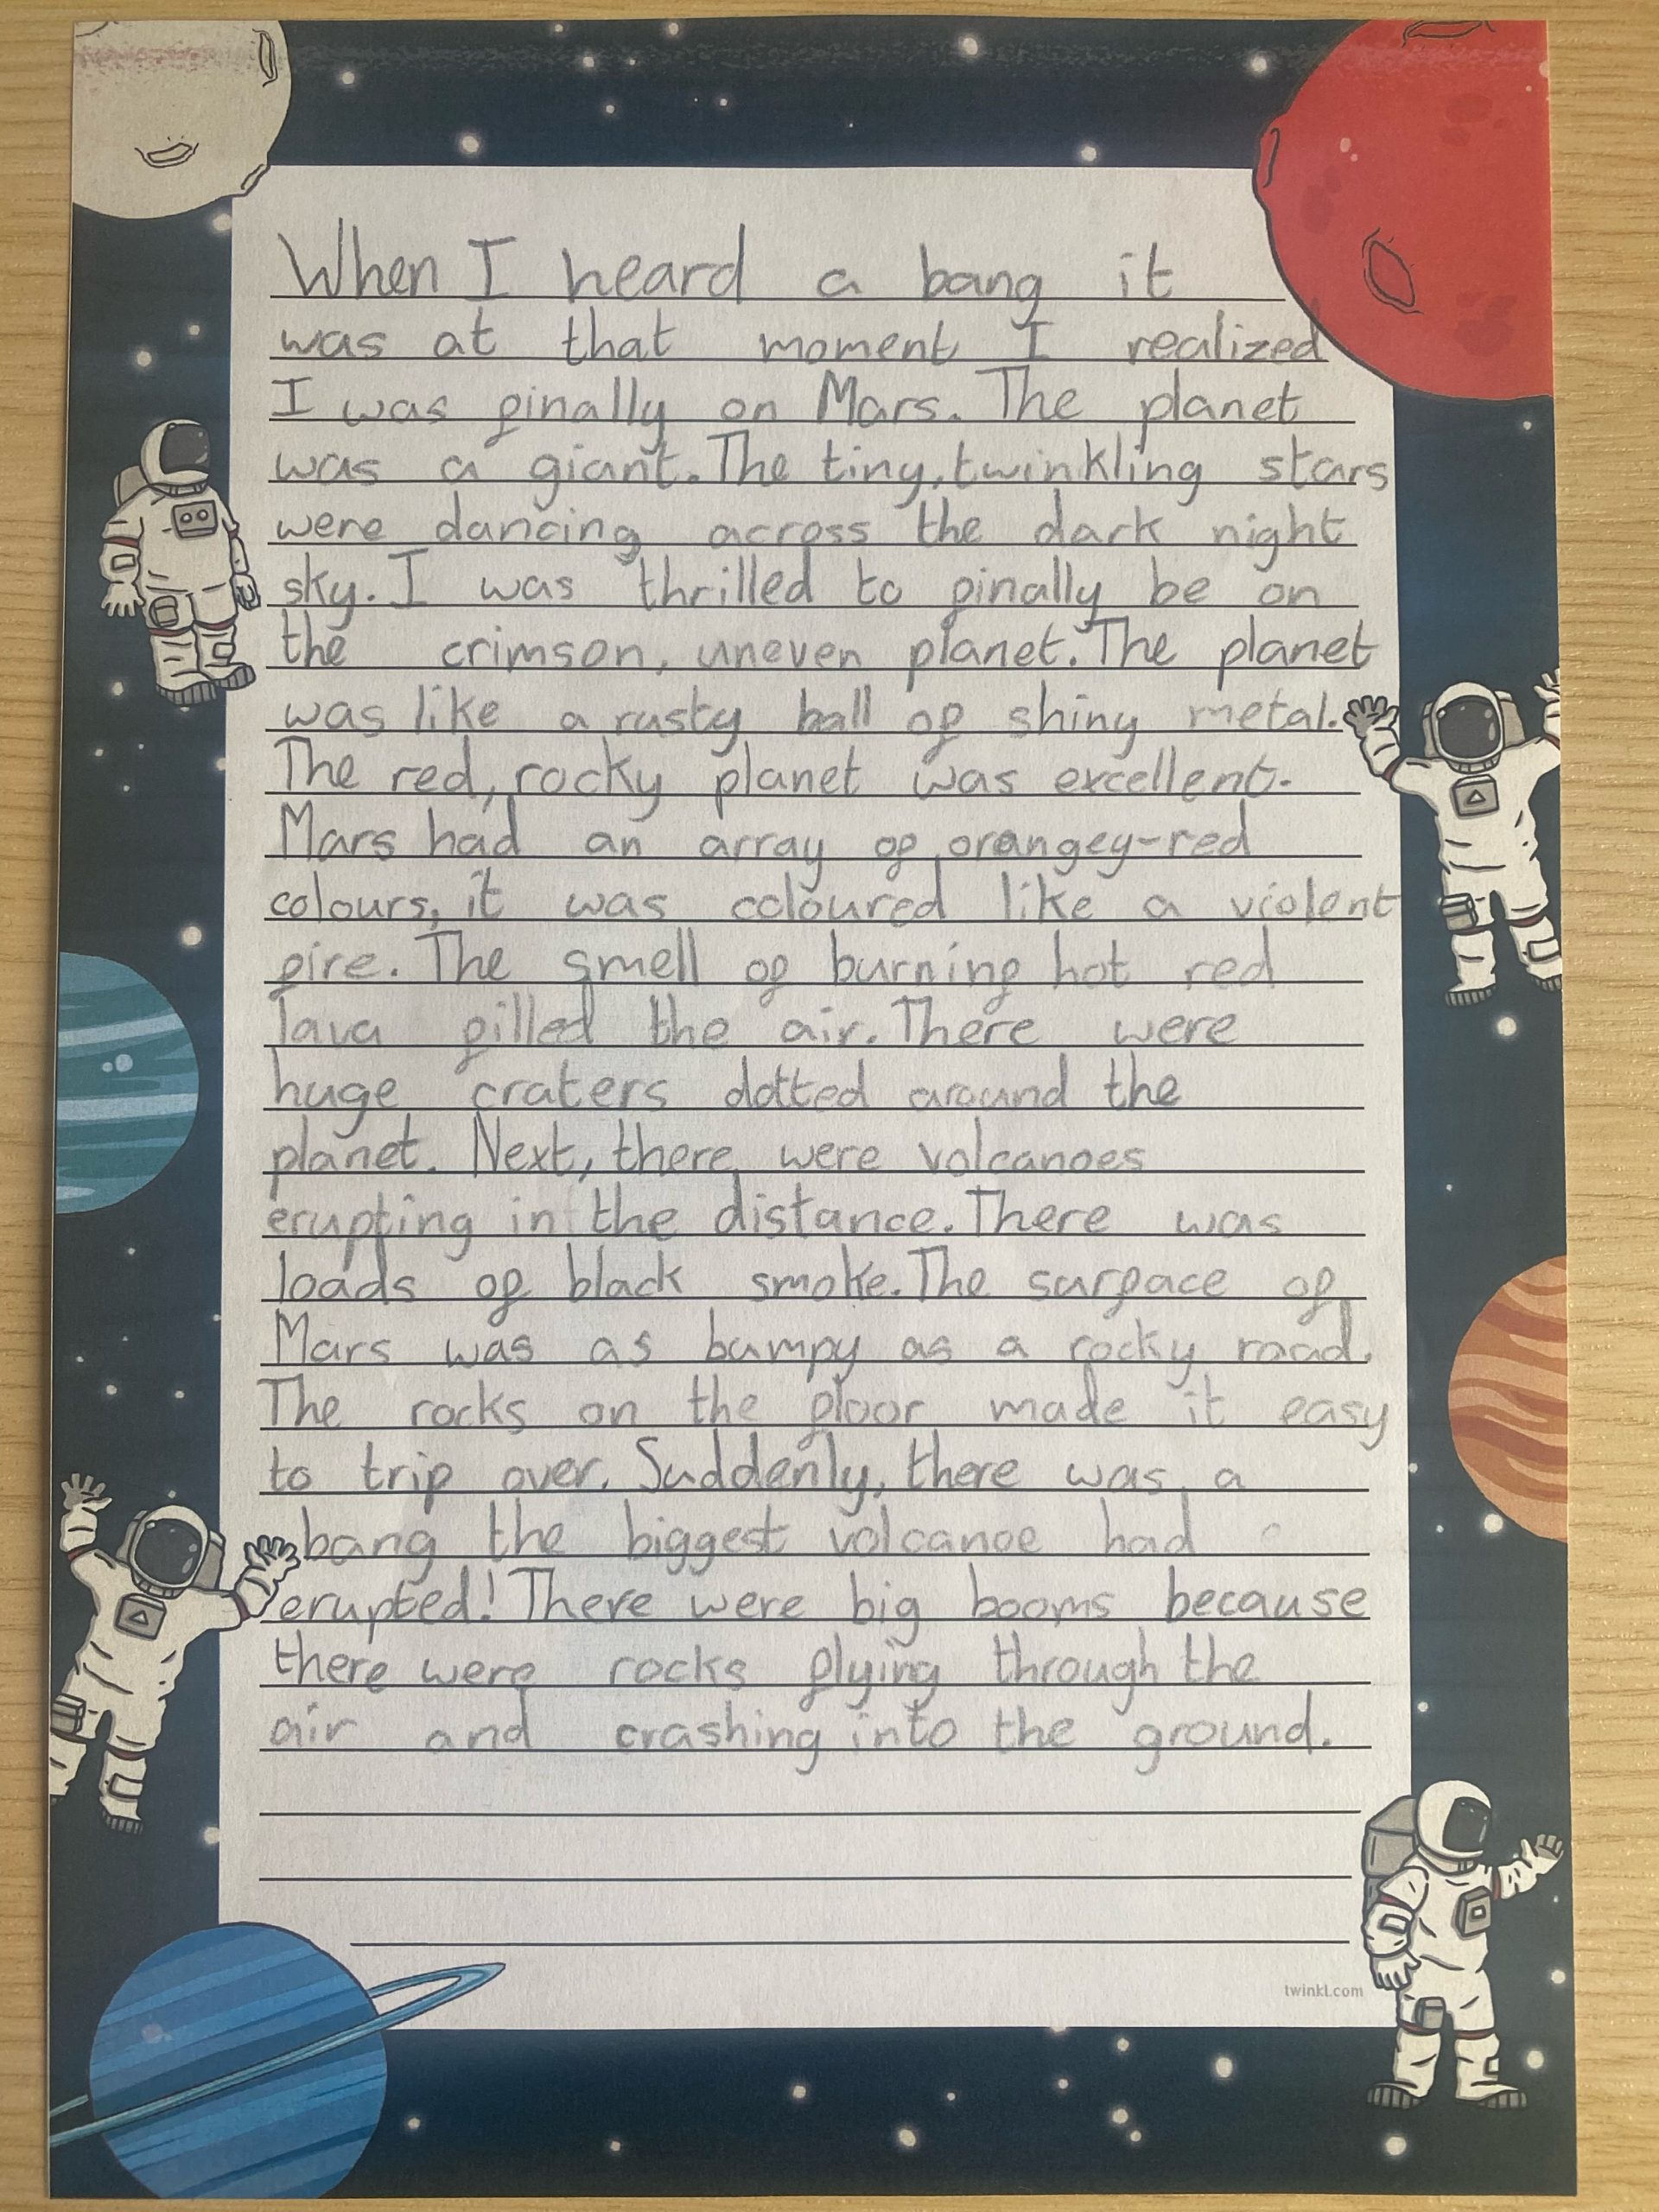 When I heard a bang it
was at that moment I realized
I was finally on Mars. The planet
was a giant. The tiny, twinkling stars
were dancing across the dark night
sky. I was thrilled to finally be on
the crimson, uneven planet. The planet
was like a rusty ball of shiny metal.
The red, rocky planet was excellent.
Mars had an array of orangey-red
colours, it was coloured like a violent
fire. The smell of burning hot red
lava filled the air. There were
huge craters dotted around the
planet. Next, there were volcanoes
erupting in the distance. There was
loads of black smoke. The surface of
Mars was as bumpy as a rocky road.
The rocks on the floor made it easy
to trip over. Suddenly, there was a
bang the biggest volcanoe had
erupted! There were big booms because
there were rocks flying through the
air and crashing into the ground.
twinkl.com